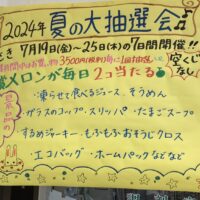 2024年 夏の大抽選会♫
とき 7月19(金)〜25日(木)の7日間開催!!
3500円
メロンが毎日2コ当たる
空くじなし
景品の
・凍らせて食べるジュース・そうめん
・ガラスのコップ・スリッパ・たまごスープ
・するめジャーキー・もふもふおそうじクロス
・エコバッグ・ホームパックなどなど